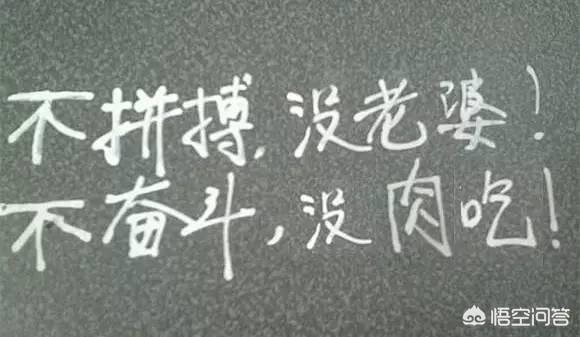 不拼搏,没老婆!
不奋斗,没肉吃!
悟空问答